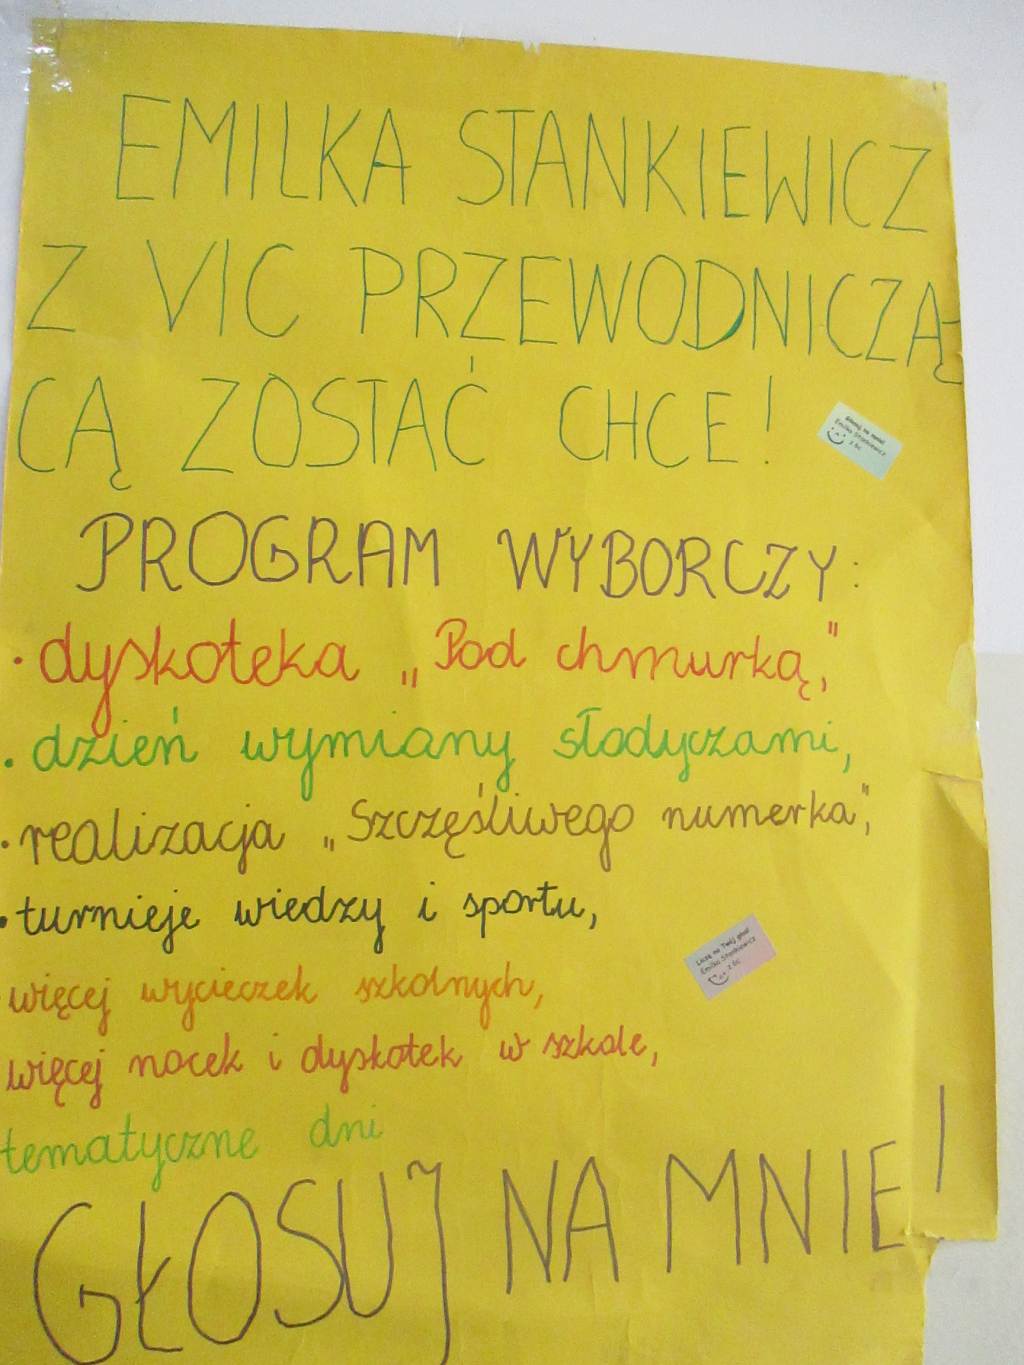 EMILKA STANKIEWICZ
Z VIC PRZEWODNICZĄ
CĄ ZOSTAĆ CHCE!
Głosuj na mnie!
Emilka Stankiewicz
z 6c
PROGRAM WYBORCZY:
· dyskoteka „Pod chmurką",
· dzień wymiany słodyczami,
· realizacja „Szczęśliwego numerka",
· turnieje wiedzy i sportu,
Liczę na Twój głos!
Emilka Stankiewicz
z 6c
więcej wycieczek szkolnych,
więcej nocek i dyskotek w szkole,
tematyczne dni
GŁOSUJ NA MNIE!